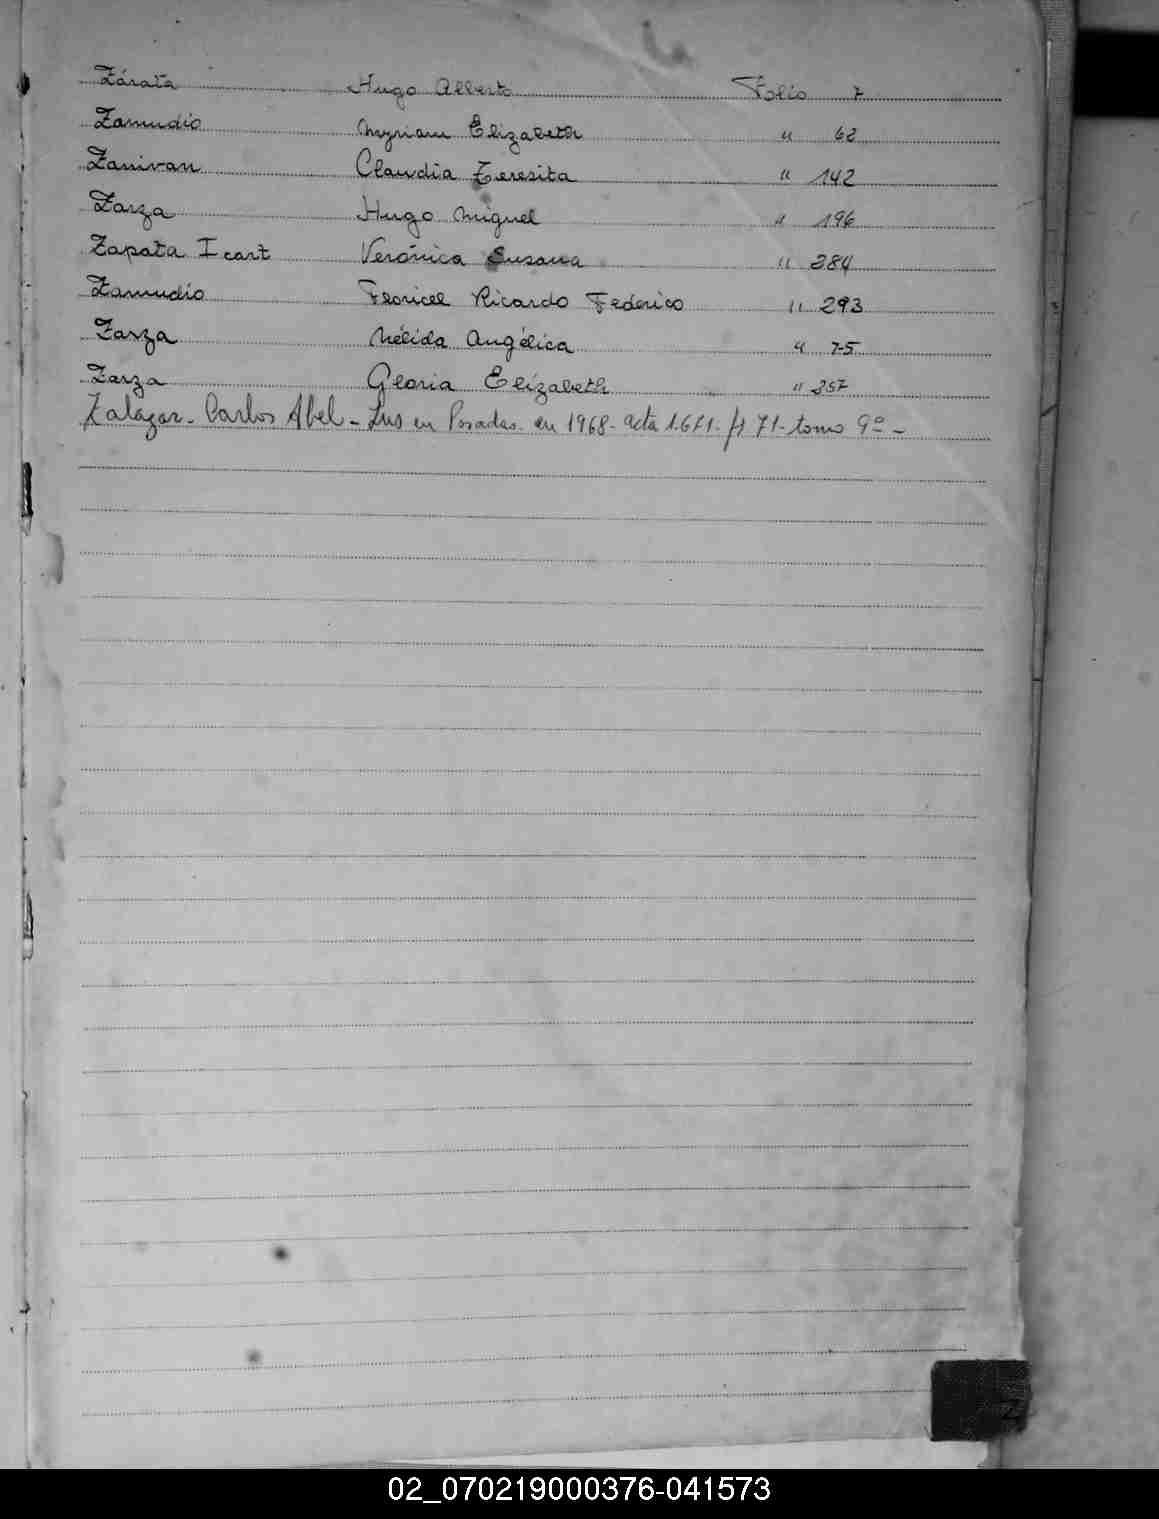 Zárata Hugo Alberto Folio 7
Zamudio Myriam Elizabeth " 62
Zanivan Claudia Teresita " 142
Zarza Hugo Miguel " 196
Zapata Icart Verónica Susana " 284
Zamudio Floricel Ricardo Federico " 293
Zarza Nélida Angélica " 75
Zarza Gloria Elizabeth " 357
Zalazar - Carlos Abel - Ins en Posadas - en 1968 - acta 1.671 - fº 71 - tomo 9º -
02_070219000376-041573